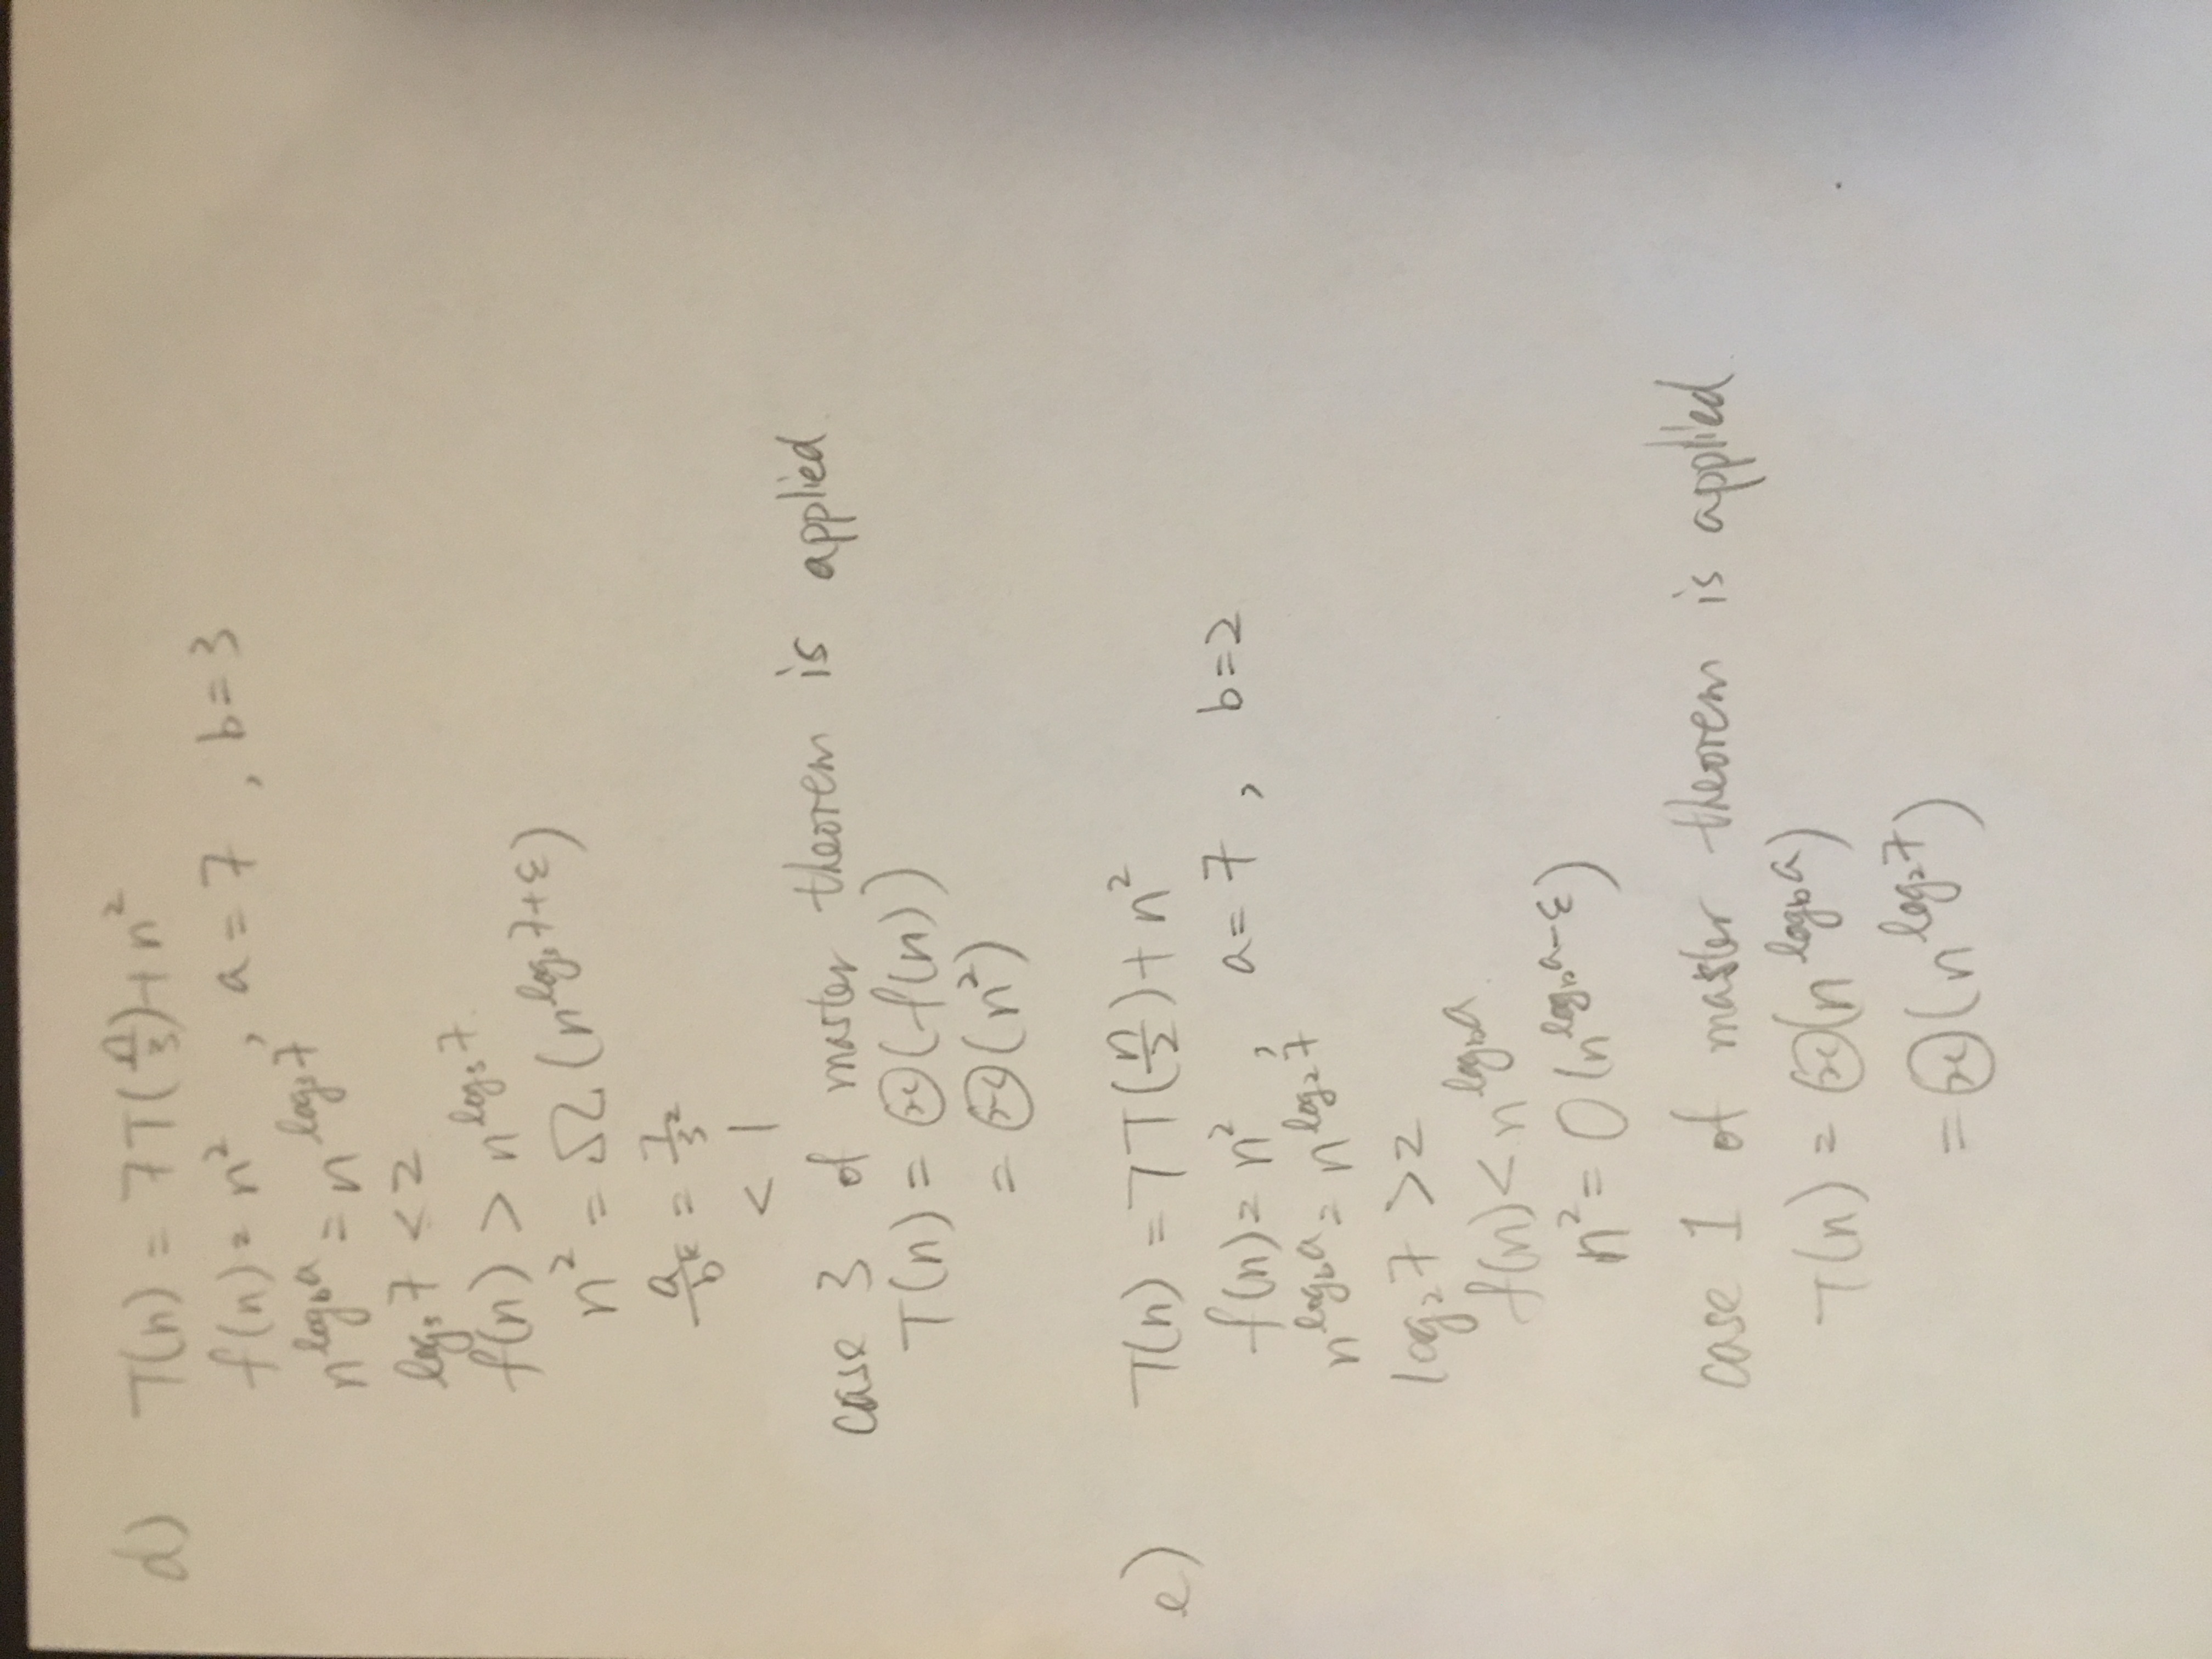 d) T(n) = 7T(n/3)+n²
f(n) = n² , a = 7 , b = 3
n^(log_b a) = n^(log_3 7)
log_3 7 < 2
f(n) > n^(log_3 7)
n² = Ω(n^(log_3 7+ε))
a/b^k = 7/3²
< 1
case 3 of master theorem is applied
T(n) = Θ(f(n))
= Θ(n²)
e) T(n) = 7T(n/2)+n²
f(n) = n² , a = 7 , b = 2
n^(log_b a) = n^(log_2 7)
log_2 7 > 2
f(n) < n^(log_b a)
n² = O(n^(log_b a-ε))
case 1 of master theorem is applied
T(n) = Θ(n^(log_b a))
= Θ(n^(log_2 7))